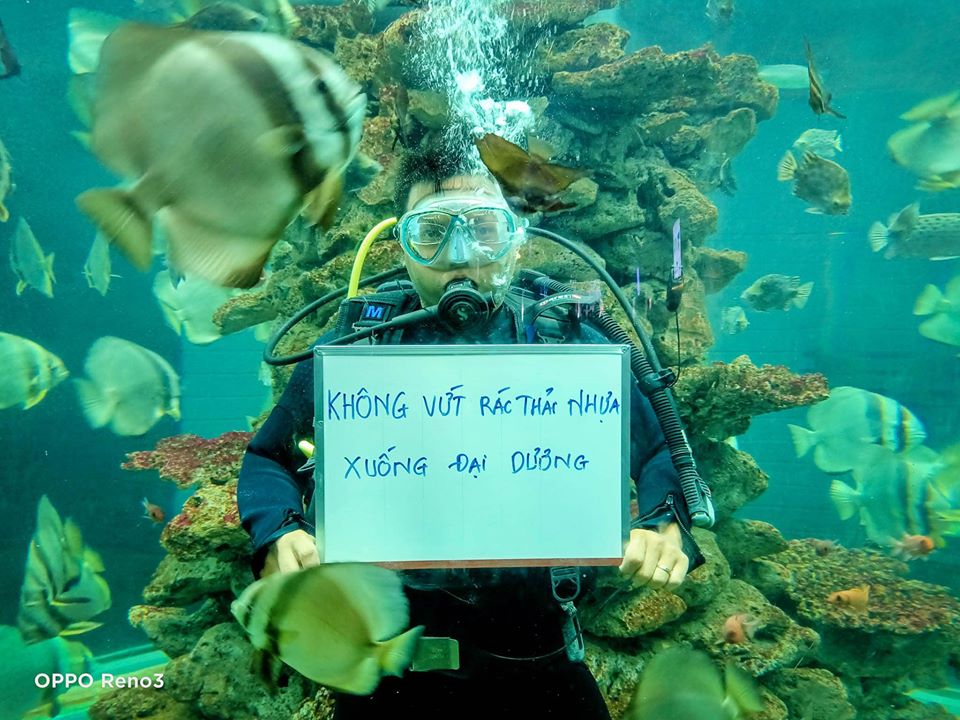 KHÔNG VỨT RÁC THẢI NHỰA
XUỐNG ĐẠI DƯƠNG
M
OPPO Reno3